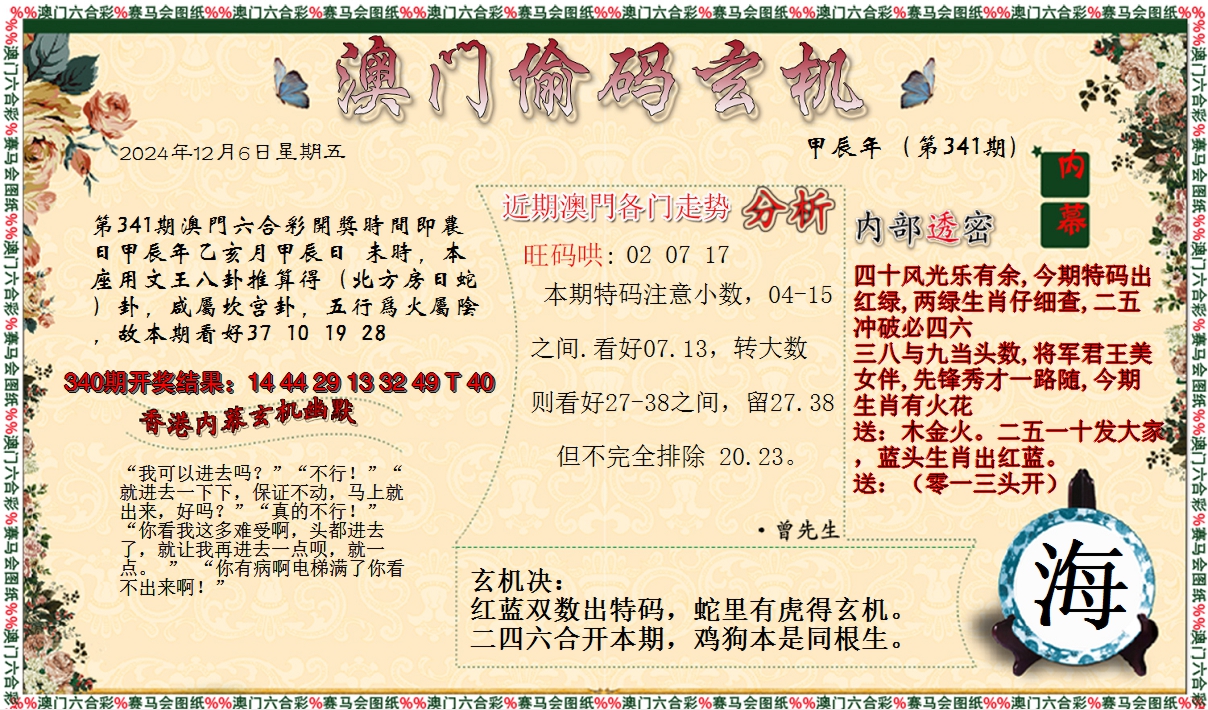 %%澳门六合彩%赛马会图纸%%澳门六合彩%赛马会图纸%%澳门六合彩%赛马会图纸%%澳门六合彩%赛马会图纸%%澳门六合彩%赛马会图纸%%澳门六合彩%赛马会图纸%%
澳门偷码玄机
2024年12月6日星期五
甲辰年（第341期）
第341期澳門六合彩開獎時間即農
日甲辰年乙亥月甲辰日 未時，本
座用文王八卦推算得（北方房日蛇
）卦，咸屬坎宫卦，五行爲火屬陰
，故本期看好37 10 19 28
340期开奖结果：14 44 29 13 32 49 T 40
香港内幕玄机幽默
“我可以进去吗？”“不行！”“
就进去一下下，保证不动，马上就
出来，好吗？”“真的不行！”
“你看我这多难受啊，头都进去
了，就让我再进去一点呗，就一
点。 ” “你有病啊电梯满了你看
不出来啊！”
近期澳門各门走势 分析
旺码哄: 02 07 17
本期特码注意小数，04-15
之间.看好07.13，转大数
则看好27-38之间，留27.38
但不完全排除 20.23。
·曾先生
内部透密
内幕
四十风光乐有余,今期特码出
红绿,两绿生肖仔细查,二五
冲破必四六
三八与九当头数,将军君王美
女伴,先锋秀才一路随,今期
生肖有火花
送：木金火。二五一十发大家
，蓝头生肖出红蓝。
送：（零一三头开）
玄机决：
红蓝双数出特码，蛇里有虎得玄机。
二四六合开本期，鸡狗本是同根生。
海
%%澳门六合彩%赛马会图纸%%澳门六合彩%赛马会图纸%%澳门六合彩%赛马会图纸%%澳门六合彩%赛马会图纸%%澳门六合彩%赛马会图纸%%澳门六合彩%赛马会图纸%%